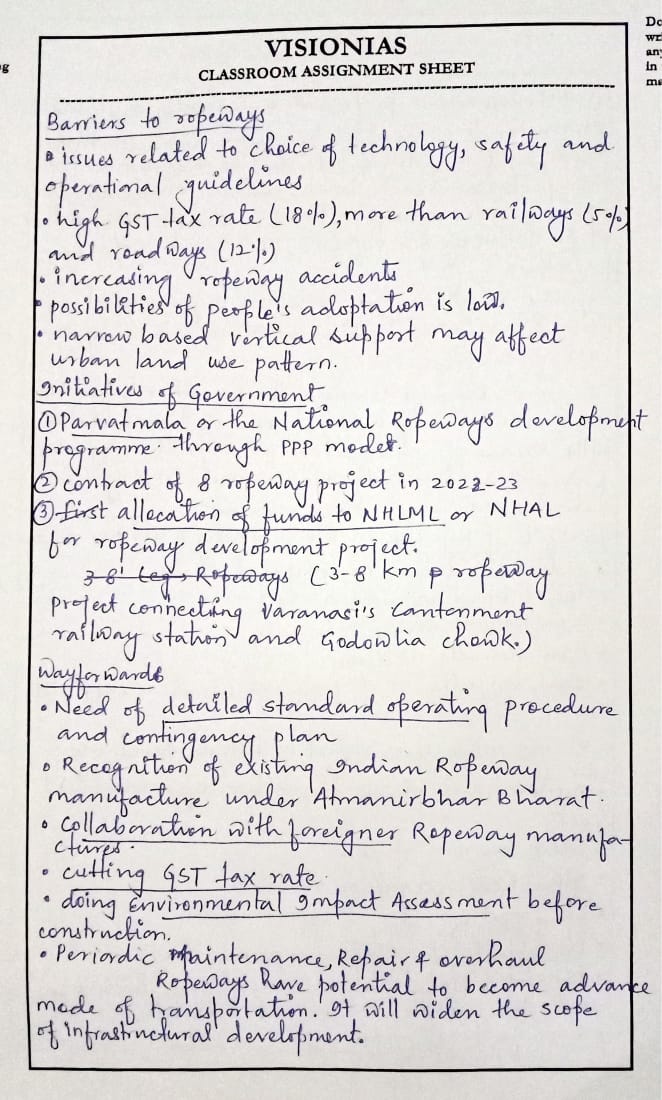 Do
wri
any
in
ma
g
VISIONIAS
CLASSROOM ASSIGNMENT SHEET
Barriers to ropeways
• issues related to choice of technology, safety and
operational guidelines
• high GST tax rate (18%), more than railways (5%)
and roadways (12%)
• increasing ropeway accidents
• possibilities of people's adoptation is low.
• narrow based vertical support may affect
urban land use pattern.
Initiatives of Government
① Parvatmala or the National Ropeways development
programme through PPP model.
② contract of 8 ropeway project in 2022-23
③ first allocation of funds to NHLML or NHAL
for ropeway development project.
Ropeways (3-8 km ropeway
project connecting Varanasi's Cantonment
railway station and Godowlia chowk.)
Wayforwards
• Need of detailed standard operating procedure
and contingency plan
• Recognition of existing Indian Ropeway
manufacture under Atmanirbhar Bharat.
• collaboration with foreigner Ropeway manufa-
ctures.
• cutting GST tax rate.
• doing Environmental Impact Assessment before
construction.
• Periordic Maintenance, Repair & overhaul
Ropeways have potential to become advance
mode of transportation. It will widen the scope
of infrastructural development.